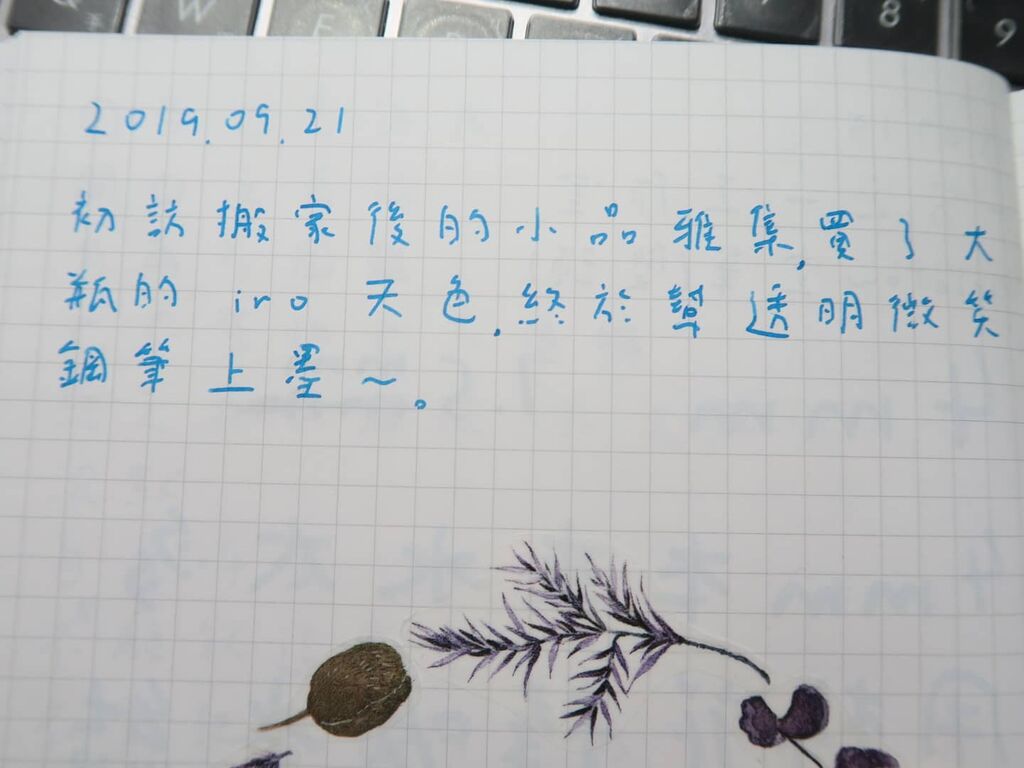 W E R 8 9
2019.09.21
初訪搬家後的小品雅集,買了大
瓶的 iro 天色,終於幫透明微笑
鋼筆上墨~。